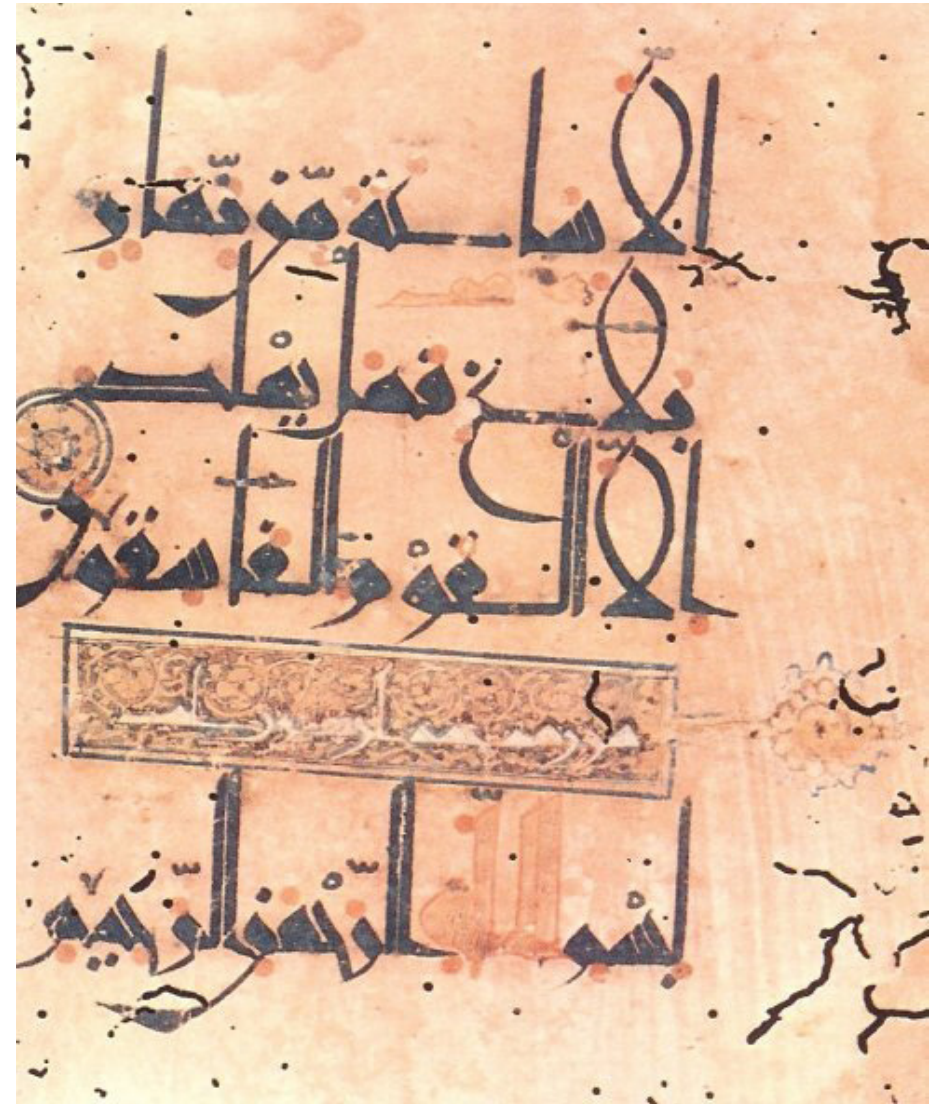 إِلَّا سَاعَةً مِّن نَّهَارٍ
بَلَاغٌ فَهَلْ يُهْلَكُ
إِلَّا الْقَوْمُ الْفَاسِقُونَ
بِسْمِ اللَّهِ الرَّحْمَنِ الرَّحِيمِ